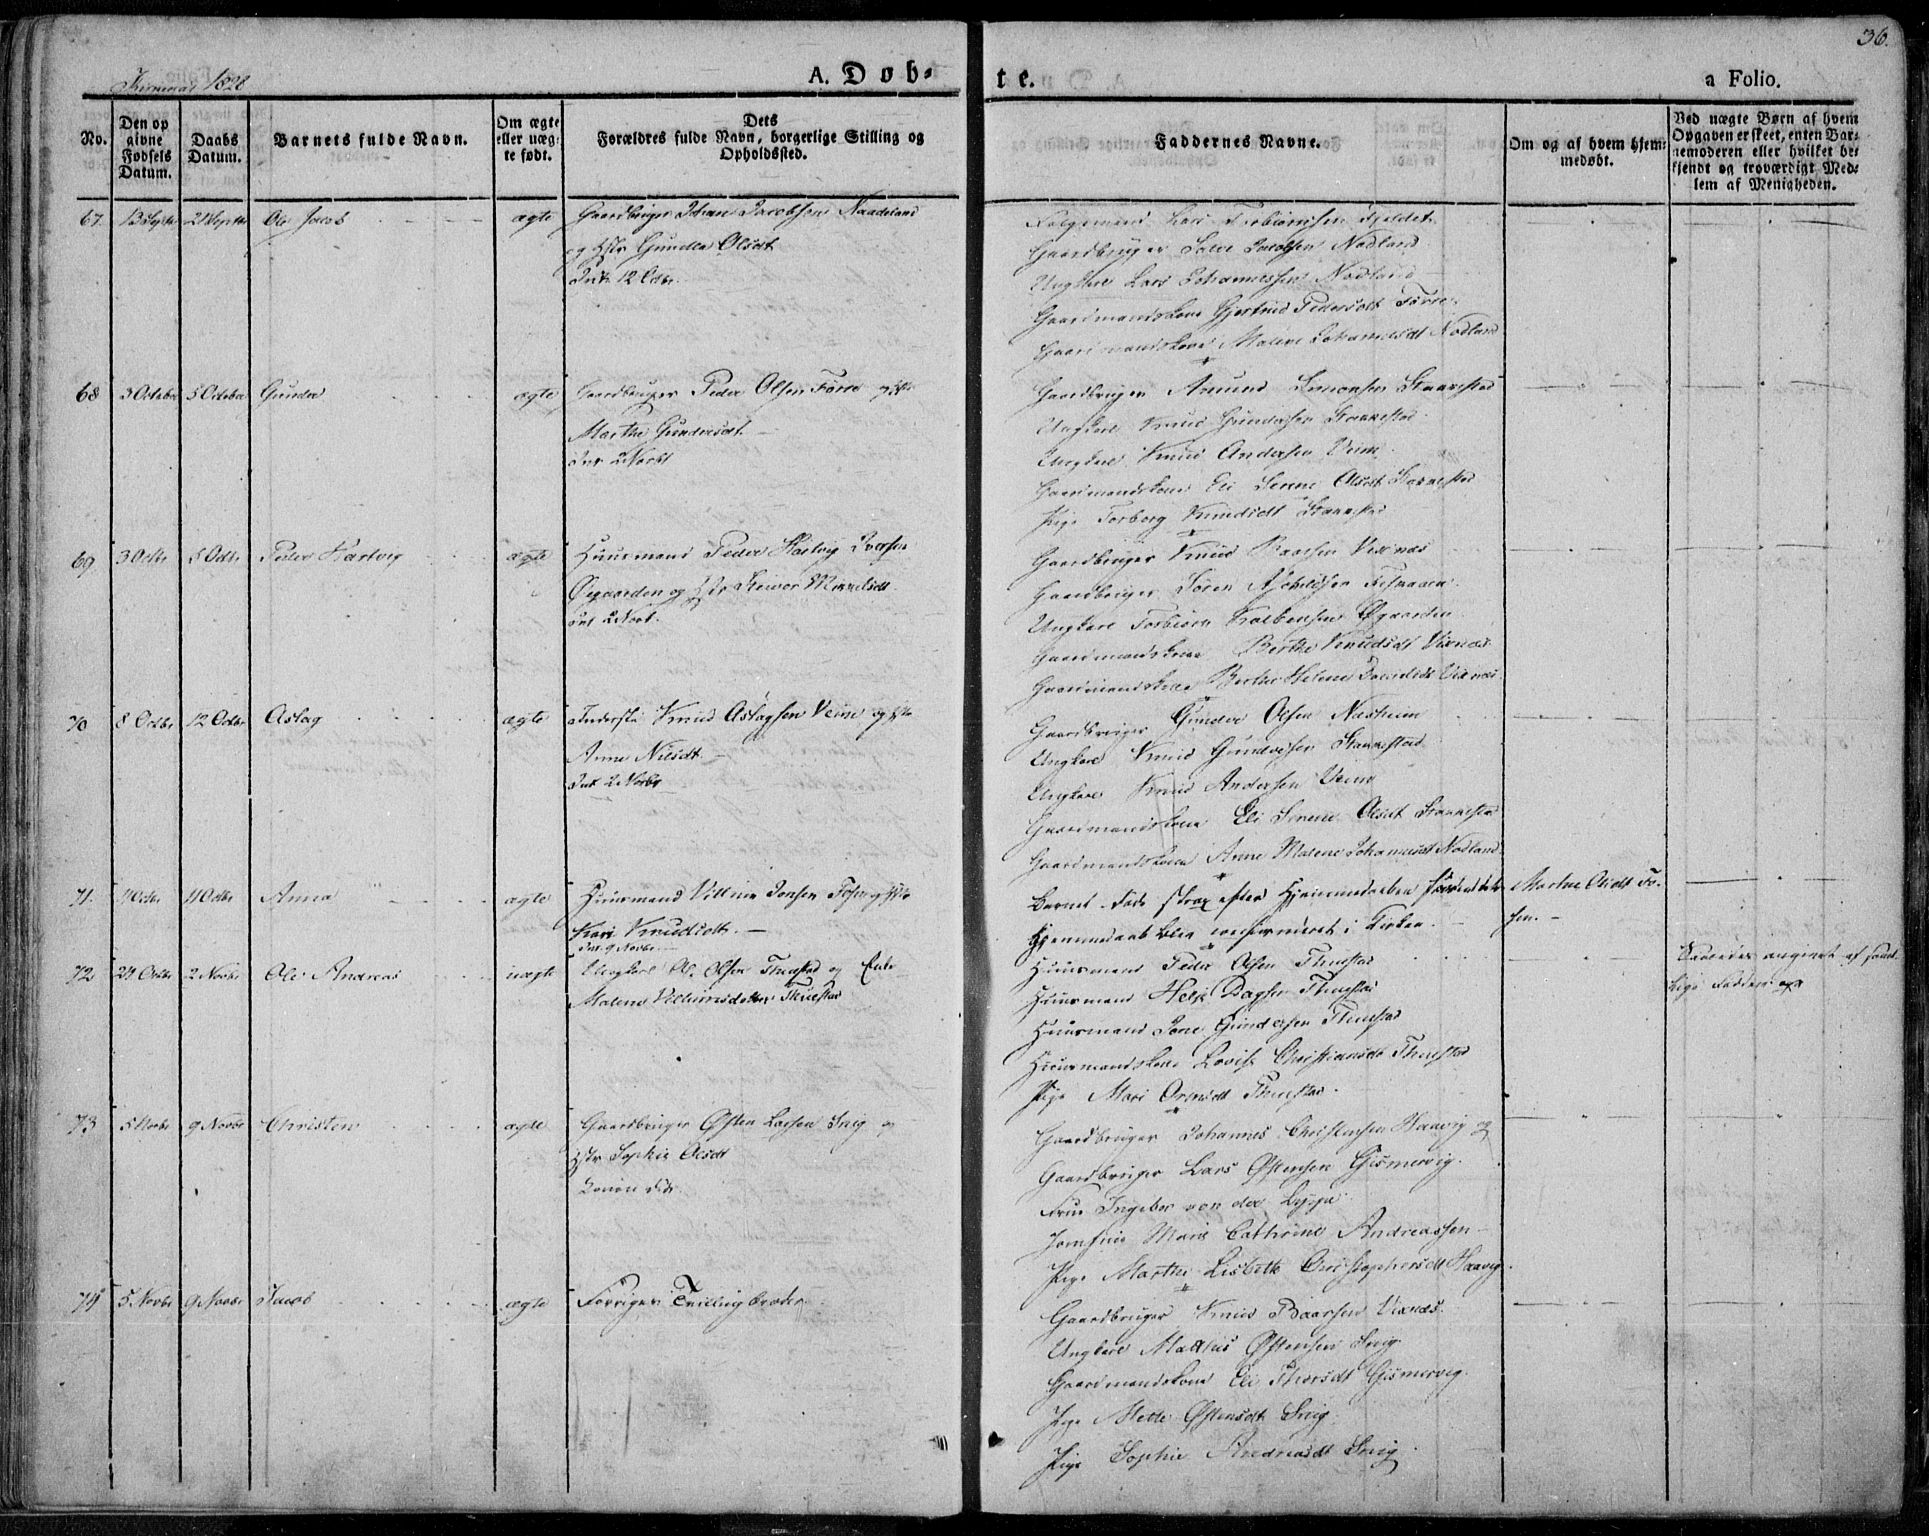 36.
1828
A. Dob-
te.
a Folio.
No.
Den op
givne
Fødsels
Datum.
Daabs
Datum.
Barnets fulde Navn.
Om ægte
eller uæg-
te født.
Dets
Forældres fulde Navn, borgerlige Stilling og
Opholdssted.
Faddernes Navne.
Om og af hvem hjem-
medøbt.
Ved uægte Børn af hvem
Opgaven er skeet, enten Bar-
nemoderen eller hvilket be-
kjendt og troværdigt Med-
lem af Menigheden.
67. 13 Septbr 21 Septbr Ole Jacob ægte Gaardbruger Johan Jacobsen Naadeland
og Hstr Gundla Olsdt
Int. 12 Octbr.
Lars Torbiørnsen
Gaardbruger Salve Jacobsen Nodland
Ungkarl Lars Johannessen Nodland
Gaardmandskone Gjertrud Pedersdt Førre
Gaardmandskone Malene Johannesdt Nodland
68 3 October 5 October Gunder ægte Gaardbruger Peder Olsen Førre og Hstr
Marthe Gundersdt.
Int. 2 Novbr
Gaardbruger Amund Simonsen Stannestad
Ungkarl Knud Gundersen Stannestad
Ungkarl Knud Andersen Veim
Gaardmandskone Eli Serine Olsdt Stannestad
Pige Torborg Knudsdt Stannestad
69. 3 Octbr 5 Octbr Peder Hartvig ægte Huusmand Peder Hartvig Iversen
Øegaarden og Hstr
Int 2 Novbr.
Gaardbruger Knud Baarsen Vixnæs
Gaardbruger Søren
Ungkarl Torbiørn Øgaarden
Gaardmandskone Berthe Knudsdt Vixnæs
Gaardmandskone Berthe Helene Vixnæs
70 8 Octbr 12 Octbr Aslag ægte Inderste Knud Aslagsen Veim og Hstr
Anne Nilsdt.
Int 2 Novbr
Gaardbruger Gunder Olsen Nasheim
Ungkarl Knud Gundersen Stannestad
Ungkarl Knud Andersen Veim
Gaardmandskone Eli Serine Olsdt Stannestad
Gaardmandskone Anne Malene Johannesdt Nodland
71. Octbr Octbr Anna ægte Huusmand Villum Jonsen Fosen og Hstr
Kari Knudsdt.
Int. 9 Novbr.
Barnet døde strax efter Hjemmedaaben
Hjemmedaab blev confirmeret i Kirken.
Marthe Olsdt Fo-
sen.
72 24 Octbr 2 Novbr Ole Andreas uægte Ungkarl Ole Olsen Thuestad og Enke
Malene Villumsdatter Thuestad
Huusmand Peder Olsen Thuestad
Huusmand Helje Dagsen Thuestad
Huusmand Jone Gundersen Thuestad
Huusmandskone Lovise Christiansdt Thuestad
Pige Mari Thuestad.
angivet af samt-
lige Faddere
73 5 Novbr 9 Novbr Christen ægte Gaardbruger Østen Larsen Snig og
Hstr Sophie Olsdt
Gaardbruger Johannes Christensen Haavig og
Gaardbruger Lars Østensen Gismervig.
Frue Ingeber von der Lyppe
Jomfrue Marie Cathrine Andreassen
Pige Marthe Lisbeth Christophersdt Haavig
74 5 Novbr 9 Novbr Jacob ægte Forriges Tvillingbroder.
Gaardbruger Knud Baarsen Vixnæs.
Ungkarl Mathis Østensen Snig
Gaardmandskone Eli Thorsdt Gismervig.
Pige Mette Østensdt Snig
Pige Sophie Andreasdt Snig